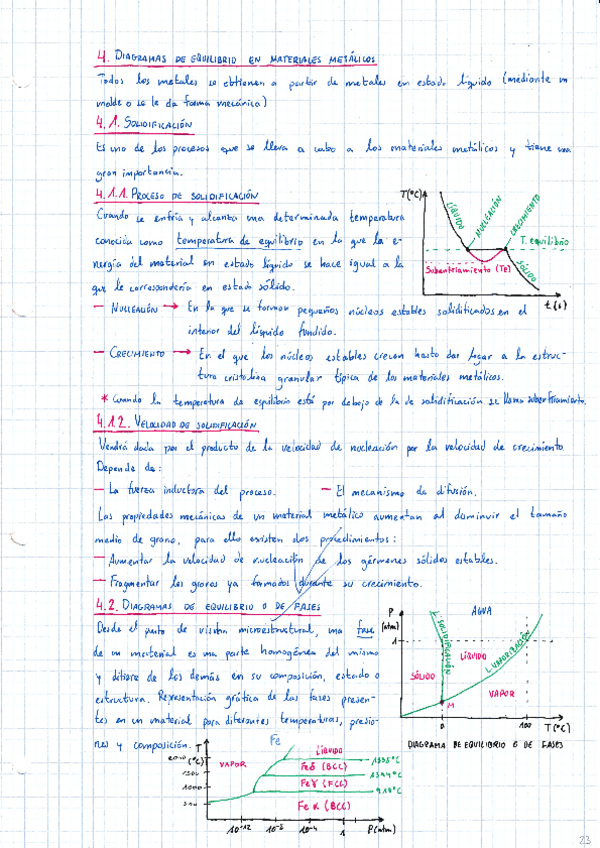 4. DIAGRAMAS DE EQUILIBRIO EN MATERIALES METÁLICOS
Todos los metales se obtienen a partir de metales en estado líquido (mediante un
molde o se le da forma mecánica)
4.1. SOLIDIFICACIÓN
Es uno de los procesos que se lleva a cabo a los materiales metálicos y tiene una
gran importancia.
4.1.1. PROCESO DE SOLIDIFICACIÓN
Cuando se enfría y alcanza una determinada temperatura
conocida como temperatura de equilibrio en la que la e-
nergía del material en estado líquido se hace igual a la
que le correspondería en estado sólido.
T(ºC)
LÍQUIDO
NUCLEACIÓN
CRECIMIENTO
T. equilibrio
Subenfriamiento (Te)
SÓLIDO
t(s)
— NUCLEACIÓN → En la que se forman pequeños núcleos estables solidificados en el
interior del líquido fundido.
— CRECIMIENTO → En el que los núcleos estables crecen hasta dar lugar a la estruc-
tura cristalina granular típica de los materiales metálicos.
* Cuando la temperatura de equilibrio está por debajo de la de solidificación se llama subenfriamiento.
4.1.2. VELOCIDAD DE SOLIDIFICACIÓN
Vendrá dada por el producto de la velocidad de nucleación por la velocidad de crecimiento
Depende de:
— La fuerza inductora del proceso. — El mecanismo de difusión.
Las propiedades mecánicas de un material metálico aumentan al disminuir el tamaño
medio de grano, para ello existen dos procedimientos:
— Aumentar la velocidad de nucleación de los gérmenes sólidos estables.
— Fragmentar los granos ya formados durante su crecimiento.
4.2. DIAGRAMAS DE EQUILIBRIO O DE FASES
Desde el punto de vista microestructural, una fase
de un material es una parte homogénea del mismo
y difiere de los demás en su composición, estado o
estructura. Representación gráfica de las fases presen-
tes en un material para diferentes temperaturas, presio-
nes y composición.
P
(atm)
AGUA
1
L. SOLIDIFICACIÓN
LÍQUIDO
L. VAPORIZACIÓN
SÓLIDO
VAPOR
M
0
100
T(ºC)
DIAGRAMA DE EQUILIBRIO O DE FASES
T
(ºC)
Fe
VAPOR
LÍQUIDO
Fe δ (BCC)
1394ºC
Fe γ (FCC)
Fe α (BCC)
2000
1500
1000
500
10⁻¹²
10⁻⁸
10⁻⁴
1
P(atm)
23